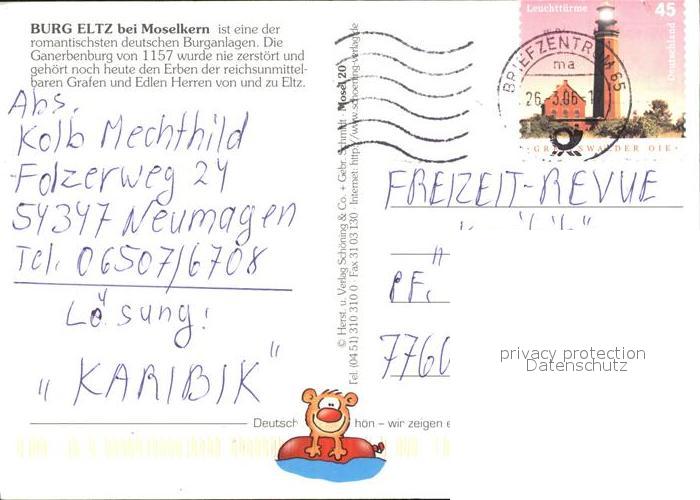 BURG ELTZ bei Moselkern ist eine der
romantischsten deutschen Burganlagen. Die
Ganerbenburg von 1157 wurde nie zerstört und
gehört noch heute den Erben der reichsunmittel-
baren Grafen und Edlen Herren von und zu Eltz.
Abs.
Kolb Mechthild
Folzerweg 24
54347 Neumagen
Tel. 06507/6708
Lösung:
"KARIBIK"
Deutsch hön – wir zeigen e
© Herst. u. Verlag Schöning & Co. + Gebr. Schmidt · Mosel 20
Tel. (04 51) 310 310 0 · Fax 31 03 130 · Internet: http://www.schoening-verlag.de
Leuchttürme 45
Deutschland
GREIFSWALDER OIE
BRIEFZENTRUM 65
ma
26.3.06-1
FREIZEIT-REVUE
PF.
7760
privacy protection
Datenschutz